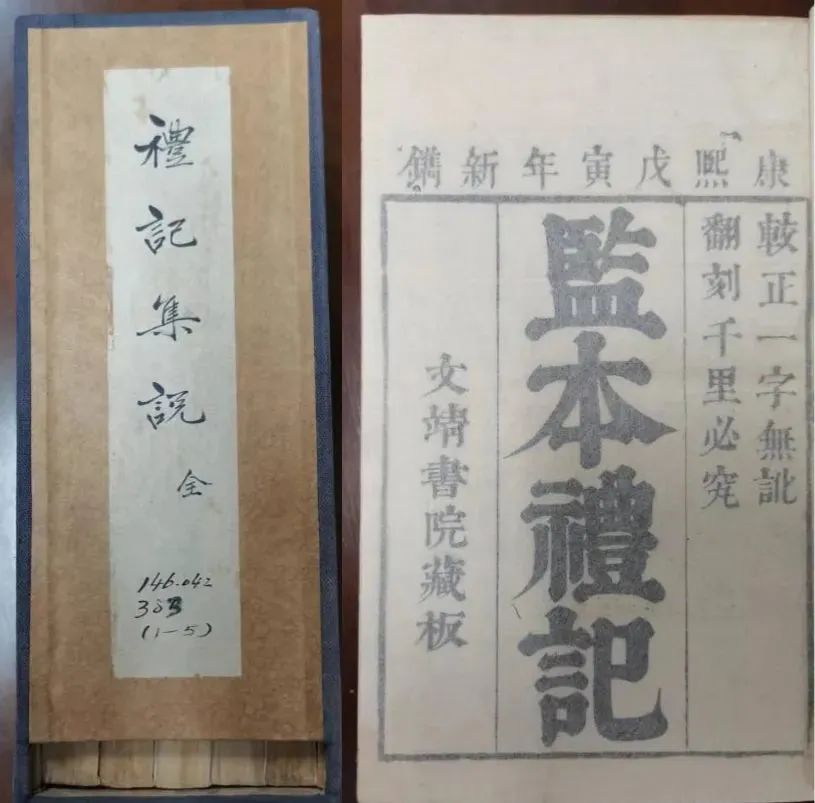 禮記集説
全
146.042
383
(1-5)
康熙戊寅年新鐫
較正一字無訛
翻刻千里必究
監本禮記
文靖書院藏板